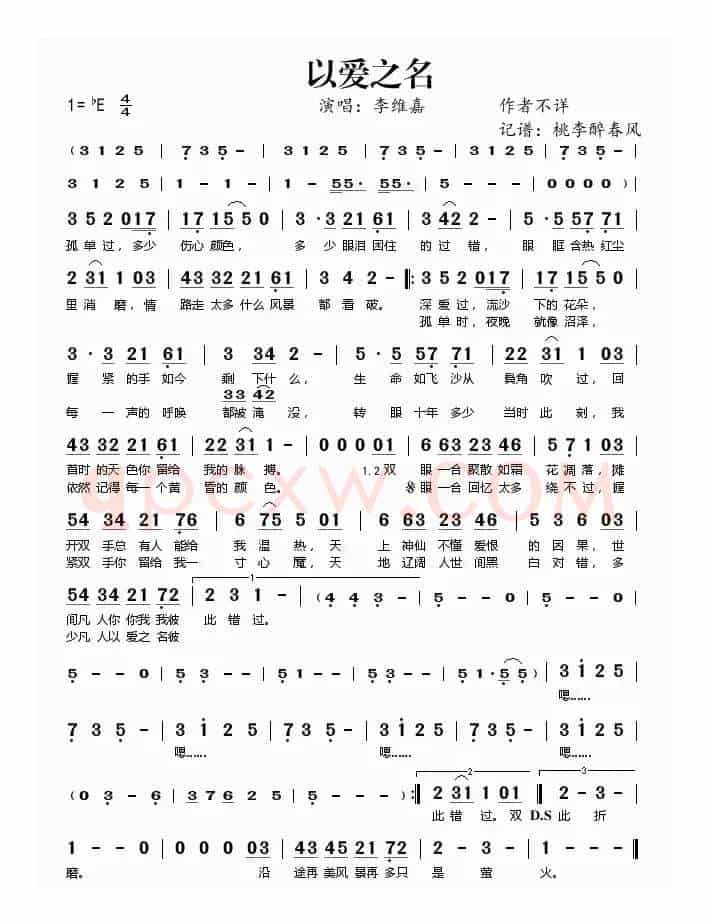 以爱之名
1=♭E 4/4 演唱：李维嘉 作者不详
记谱：桃李醉春风
( 3 1 2 5 | 7 3 5 · | 3 1 2 5 | 7 3 5 · | 3 1 2 5 | 7 3 5 · |
3 1 2 5 | 1 - 1 - | 1 - 55 55· | 5 - - - | 0 0 0 0 ) |
3 5 2 017 | 17 15 5 0 | 3 · 3 21 61 | 3 42 2 - | 5 · 5 57 71 |
孤单过，多少 伤心 颜色， 多 少眼泪 困住 的 过 错， 眼 眶 含热 红尘
2 31 1 03 | 43 32 21 61 | 3 34 2 - ‖: 3 5 2 017 | 17 15 5 0 |
里 消 磨，情 路走 太多 什么 风景 都 看 破。 深 爱 过，流沙 下的 花朵，
孤 单 时，夜晚 就像 沼泽，
3 · 3 21 61 | 3 34 2 - | 5 · 5 57 71 | 22 31 1 03 |
握 紧 的手 如今 剩 下什 么， 生 命 如飞 沙从 鬓角 吹 过，回
33 42
每 一 声的 呼唤 都被 淹 没， 转 眼 十年 多少 当时 此 刻，我
43 32 21 61 | 22 31 1 - | 0 0 0 01 | 6 63 23 46 | 5 71 03 |
首时 的天 色你 留给 我的 脉 搏。 1.2双 眼 一合 聚散 如霜 花 凋 落，摊
依然 记得 每一 个黄 昏的 颜 色。 𝄋眼 一合 回忆 太多 绕 不 过，握
qpcxw.com
54 34 21 76 | 6 75 5 01 | 6 63 23 46 | 5 3 6 03 |
开双 手总 有人 能给 我 温 热，天 上 神仙 不懂 爱恨 的 因 果，世
紧双 手你 留给 我一 寸 心 魔，天 地 辽阔 人世 间黑 白 对 错，多
1
54 34 21 72 | 2 3 1 - | ( 4 4 3 · | 5 - - 0 | 5 - - 0 |
间凡 人你 你我 我彼 此 错 过。
少凡 人以 爱之 名彼
5 - - 0 | 5 3 · - | 51 · - | 53 · - | 51· 55 ) | 3 1 2 5 |
嗯……
7 3 5 · | 3 1 2 5 | 7 3 5 · | 3 1 2 5 | 7 3 5 · | 3 1 2 5 |
嗯…… 嗯……
2 3
( 0 3 · 6 | 3 7 6 2 5 | 5 - - - ) :‖ 2 31 1 01 ‖ 2 - 3 - |
此 错 过。双 D.S 此 折
1 - - 0 | 0 0 0 03 | 43 45 21 72 | 2 - 3 - | 1 - - ‖
磨。 沿 途再 美风 景再 多只 是 萤 火。